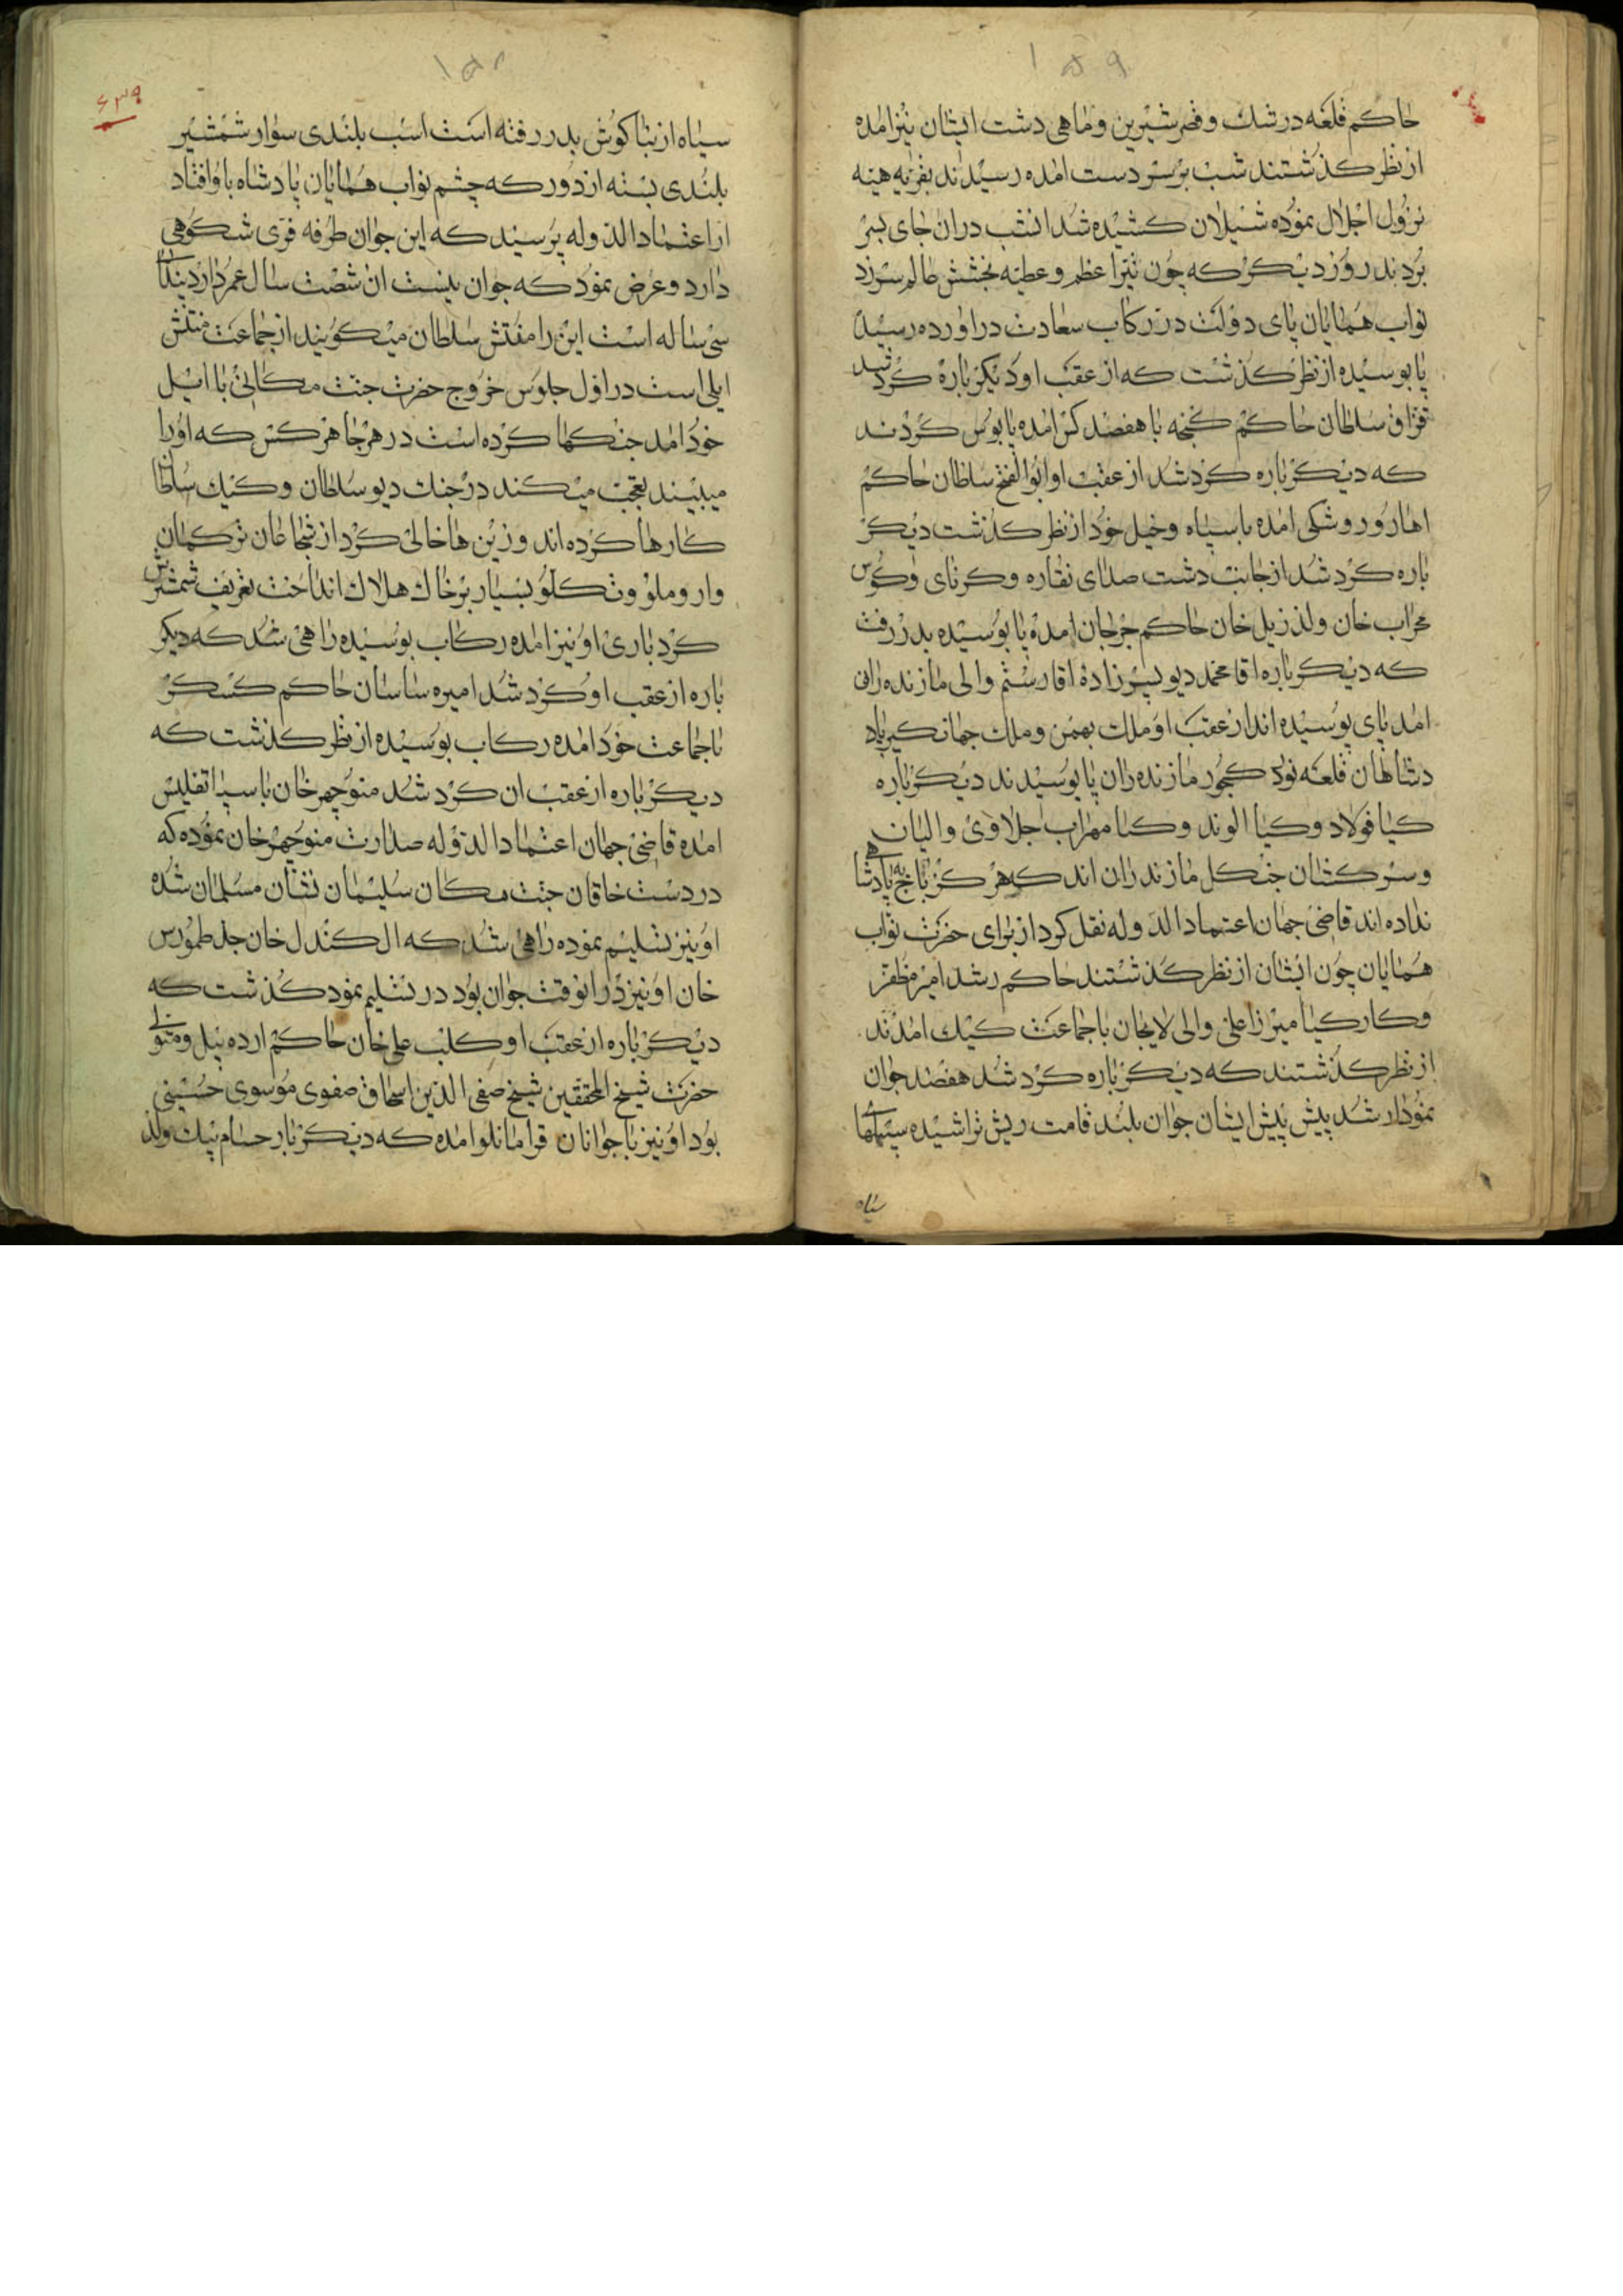 ۱۵۹
حاکم قلعه درتنك و قصر شیرین و ماهی دشت ایشان نیز امده
از نظر کذشتند شب بر سر دست امده رسیدند بقریه هینه
نزول اجلال نموده شیلان کشیده شد انشب در ان جای بسر
بردند روز دیکر که چون نیر اعظم و عطیه بخشش عالم سر زد
نواب همایان پای دولت در رکاب سعادت دراورده رسید
پا بوسیده از نظر کذشت که از عقب او دیکر باره کرد شد
قزاق سلطان حاکم کنجه با هفصد کس امده پابوس کردند
که دیکر باره کرد شد از عقب او ابوالفتح سلطان حاکم
اهار و روشکی امده با سپاه و خیل خود از نظر کذشت دیکر
باره کرد شد از جانب دشت صدای نقاره و کرنای و کوس
محراب خان ولد زیل خان حاکم جرجان امده پا بوسیده بدر رفت
که دیکر باره اقا محمد دیو پسر زاده اقا رستم والی مازنده ران
امد پای بوسیده اند از عقب او ملك بهمن و ملك جهانکیر پاد
دشاهان قلعه نور کجور مازنده ران پا بوسیدند دیکر باره
کیا فولاد و کیا الوند و کیا مهراب جلاوی والیان
و سر کشان جنکل مازندران اند که هرکز باج به پادشاهی
نداده اند قاضی جهان اعتماد الدوله نقل کرد از برای حضرت نواب
همایان چون ایشان از نظر کذشتند حاکم رشد امیر مظفر
و کارکیا میرزا علی والی لایجان با جماعت کیك امدند
از نظر کذشتند که دیکر باره کرد شد هفصد جوان
نمودار شد پیش پیش ایشان جوان بلند قامت ریش تراشیده سبیلهای
سیاه
۱۵۸
۶۳۹
سیاه از بنا کوش بدر رفته است اسب بلندی سوار شمشیر
بلندی بسته از دور که چشم نواب همایان پادشاه باو افتاد
از اعتماد الدوله پرسید که این جوان طرفه قوی شکوهی
دارد و عرض نمود که جوان نیست ان شصت سال عمر دارد
سی ساله است این را مفتش سلطان میکویند از جماعت
ایلی است در اول جلوس خروج حضرت جنت مکانی با ایل
خود امد جنکها کرده است در هر جا هر کس که او را
میبیند تعجب میکند در جنك دیو سلطان و کپك سلطان
کارها کرده اند و زین ها خالی کرد از شجاعان ترکمان
وار و ملو و تکلو بسیار بر خاك هلاك انداخت تعریف شمشیرش
کرد باری او نیز امده رکاب بوسیده راهی شد که دیکر
باره از عقب او کرد شد امیره ساسان حاکم کسکر
با جماعت خود امده رکاب بوسیده از نظر کذشت که
دیکر باره از عقب ان کرد شد منوچهر خان با سپا تفلیس
امده قاضی جهان اعتماد الدوله صدارت منوچهر خان نموده که
در دست خاقان جنت مکان سلیمان نشان مسلمان شده
او نیز تسلیم نموده راهی شد که ال کندل خان جد طمورس
خان او نیز در انوقت جوان بود در تسلیم نمود کذشت که
دیکر باره از عقب او کلب علی خان حاکم ارده بیل و متولی
حضرت شیخ المحققین شیخ صفی الدین اسحاق صفوی موسوی حسینی
بود او نیز با جوانان قرامانلو امده که دیکر بار حسام بیك ولد